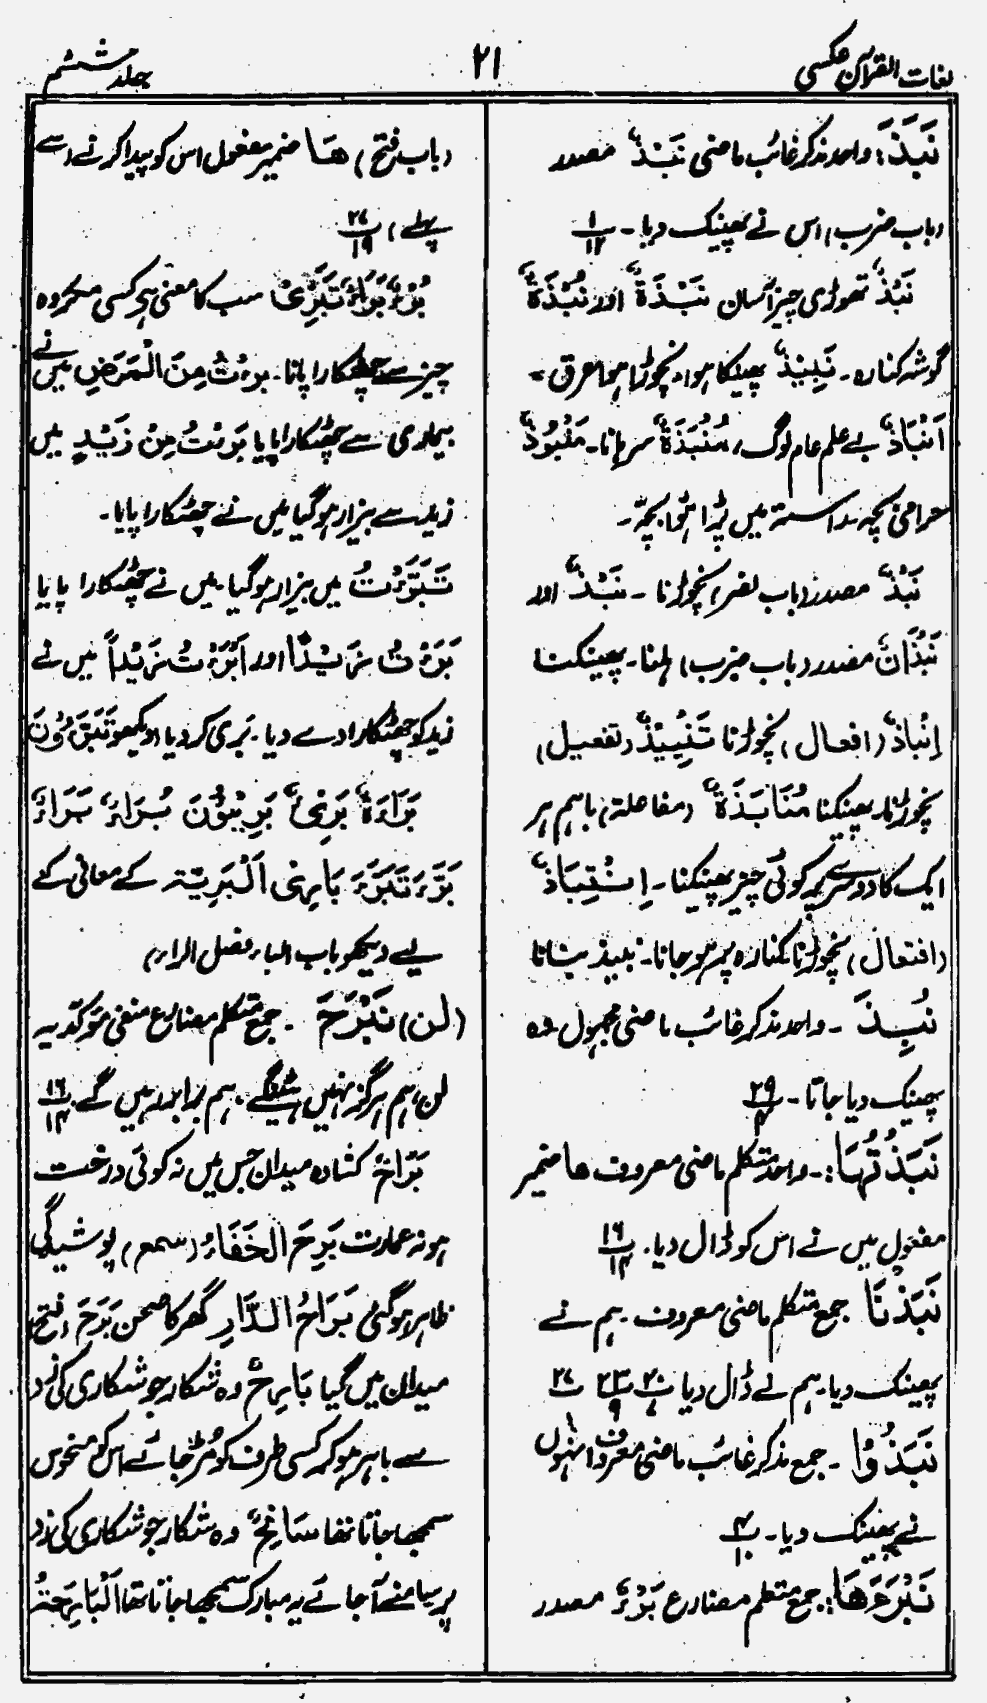 لغات القرآن عکسی
۲۱
جلد ششم
نَبَذَ: واحد مذکر غائب ماضی نَبْذٌ مصدر
(باب ضرب) اس نے پھینک دیا۔ ۱/۱۲
نَبْذٌ تھوڑی چیز آسان نَبْذَةٌ اور نُبْذَةٌ
گوشہ کنارہ۔ نَبِیْذٌ پھینکا ہوا۔ نچوڑا ہوا عرق۔
اَنْبَاذٌ بے علم عام لوگ، مُنْبَذَةٌ سرہانا۔ مَنْبُوْذٌ
حرامی بچہ۔ راستہ میں پڑا ہوا بچّہ۔
نَبْذٌ مصدر (باب نصر) نچوڑنا۔ نَبْذٌ اور
نَبَذَانٌ مصدر (باب ضرب) ہلنا۔ پھینکنا
اِنْبَاذٌ (افعال) نچوڑنا تَنْبِیْذٌ (تفعیل)
نچوڑنا۔ پھینکنا مُنَابَذَةٌ (مفاعلۃ) باہم ہر
ایک کا دوسرے پر کوئی چیز پھینکنا۔ اِنْتِبَاذٌ
(افتعال) نچوڑنا کنارہ پر ہو جانا۔ نبیذ بنانا
نُبِذَ ۔ واحد مذکر غائب ماضی مجہول وہ
پھینک دیا جاتا۔ ۲۹/۴
نَبَذْتُهَا:۔ واحد متکلم ماضی معروف ھا ضمیر
مفعول میں نے اس کو ڈال دیا۔ ۱۶/۱۴
نَبَذْنَا جمع متکلم ماضی معروف ۔ ہم نے
پھینک دیا۔ ہم نے ڈال دیا ۲۰/۷ ۲۳/۹ ۲۷/۱
نَبَذُوْا ۔ جمع مذکر غائب ماضی معروف انہوں
نے پھینک دیا۔ ۴/۱۰
نَبْرَءَهَا: جمع متکلم مضارع بَرْءٌ مصدر
(باب فتح) ھَا ضمیر مفعول اس کو پیدا کرنے (سے
پہلے) ۲۷/۱۹
بُرْءٌ بَرَاءٌ تَبَرِّیْ سب کا معنی ہے کسی مکروہ
چیز سے چھٹکارا پانا۔ برءتُ مِنَ الْمَرَضِ میں نے
بیماری سے چھٹکارا پایا بَرِئْتُ مِنْ زَیْدٍ میں
زید سے بیزار ہو گیا میں نے چھٹکارا پایا۔
تَبَرَّءْتُ میں بیزار ہو گیا۔ میں نے چھٹکارا پایا
بَرَّءْتُ زَیْدًا اور اَبْرَءْتُ زَیْداً میں نے
زید کو چھٹکارا دے دیا۔ بَری کر دیا (دیکھو
بَرَاءَةٌ بَرِیْءٌ بَرِیْئُوْنَ بُرَاءٌ بَرَاءٌ
بَرَّءَ تَبَرَّءَ بَارِئٌ اَلْبَرِیَّۃ کے معانی کے
لیے دیکھو باب الباء فصل الراء)
(لن) نَبْرَحَ ۔ جمع متکلم مضارع منفی مؤکّد بہ
لن، ہم ہرگز نہیں ہٹیں گے، ہم برابر رہیں گے ۱۶/۱۴
بَرَاحٌ کشادہ میدان جس میں نہ کوئی درخت
ہو نہ عمارت بَرِحَ الْخَفَاءُ (سمع) پوشیدگی
ظاہر ہو گئی بَرَاحُ الدَّارِ گھر کا صحن بَرَحَ (فتح)
میدان میں گیا بَارِحٌ وہ شکار جو شکاری کی زد
سے باہر ہو کر کسی طرف کو مُڑ جائے اس کو منحوس
سمجھا جاتا تھا سَانِحٌ وہ شکار جو شکاری کی زد
پر سامنے آ جائے یہ مبارک سمجھا جاتا تھا اَلْبَارِحَۃُ